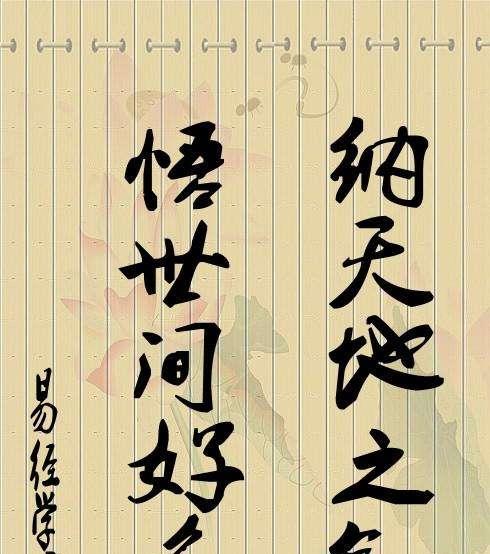 纳天地之
悟世间好
易经学